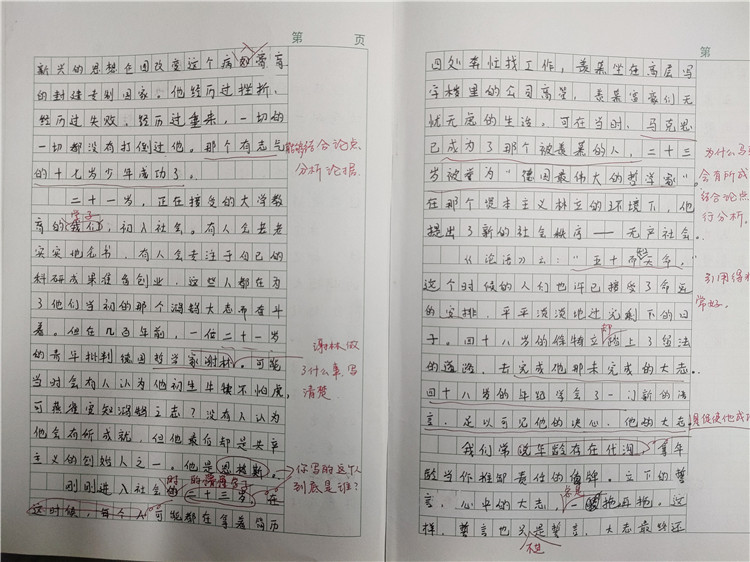 第 页
新兴的思想企图改变这个病
的封建专制国家。他经历过挫折，
经历过失败，经历过重来，一切的
一切都没有打倒过他。那个有志气
的十七岁少年成功了。
能够结合论点
分析论据
二十一岁，正在接受的大学教
育的我们，初入社会。有人会老老
学子
实实地念书，有人会专注于自己的
科研成果准备创业，这些人都在为
了他们当初的那个鸿鹄大志而奋斗
着。但在几百年前，一位二十一岁
的青年批判德国哲学家谢林。可能
当时会有人认为他初生牛犊不怕虎，
可燕雀安知鸿鹄之志？没有人认为
他会有所成就，但他最后却是共产
主义的创始人之一。他是恩格斯。
谢林做
了什么事，写
清楚
你写的这个人
到底是谁？
刚刚进入社会的二十三岁，在
这时候，每个人可能都在拿着简历
第
四处奔忙找工作，羡慕坐在高层写
字楼里的公司高管，羡慕富豪们无
忧无虑的生活。可在当时，马克思
已成为了那个被羡慕的人，二十三
岁被誉为“德国最伟大的哲学家”。
在那个资本主义林立的环境下，他
提出了新的社会秩序——无产社会。
为什么马
会有所成
结合论点
行分析。
《论语》云：“五十而知天命。”
这个时候的人们也许已接受了命运
的安排，平平淡淡地过完剩下的日
子。四十八岁的他踏上了留法
却
的道路，去完成他那未完成的大志。
四十八岁的年纪学会了一门新的语
言，足以可见他的决心，他的大志。
引用得
常好。
促使他成
我们常说年龄存在代沟，拿年
龄当作推卸责任的借口。立下的誓
言，心中的大志，一拖再拖。这
总是
样，誓言也只是誓言，大志最终还
不过